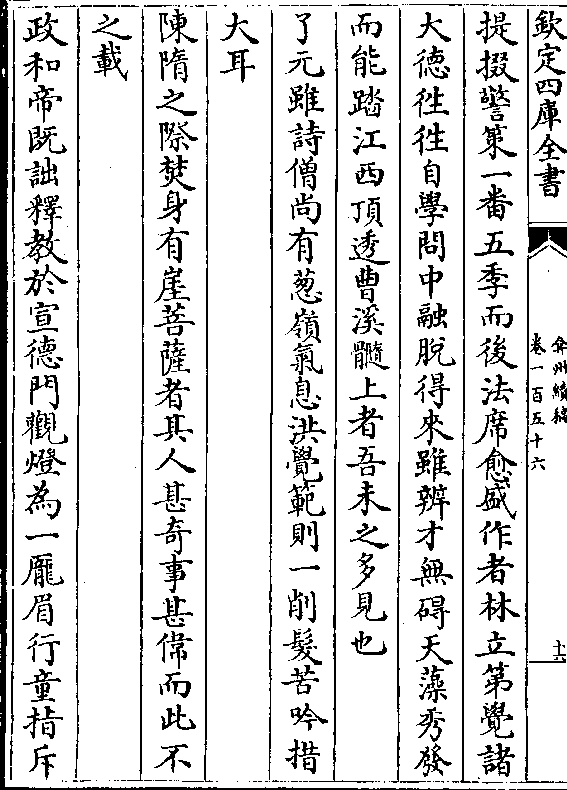 欽定四庫全書
弇州續稿
卷一百五十六
十六
提掇警策一番五季而後法席愈盛作者林立第覺諸
大德徃徃自學問中融脫得來雖辨才無碍天藻秀發
而能踏江西頂透曹溪髓上者吾未之多見也
了元雖詩僧尚有葱嶺氣息洪覺範則一削髮苦吟措
大耳
陳隋之際焚身有崖菩薩者其人甚奇事甚偉而此不
之載
政和帝既詘釋教於宣德門觀燈為一龎眉行童指斥